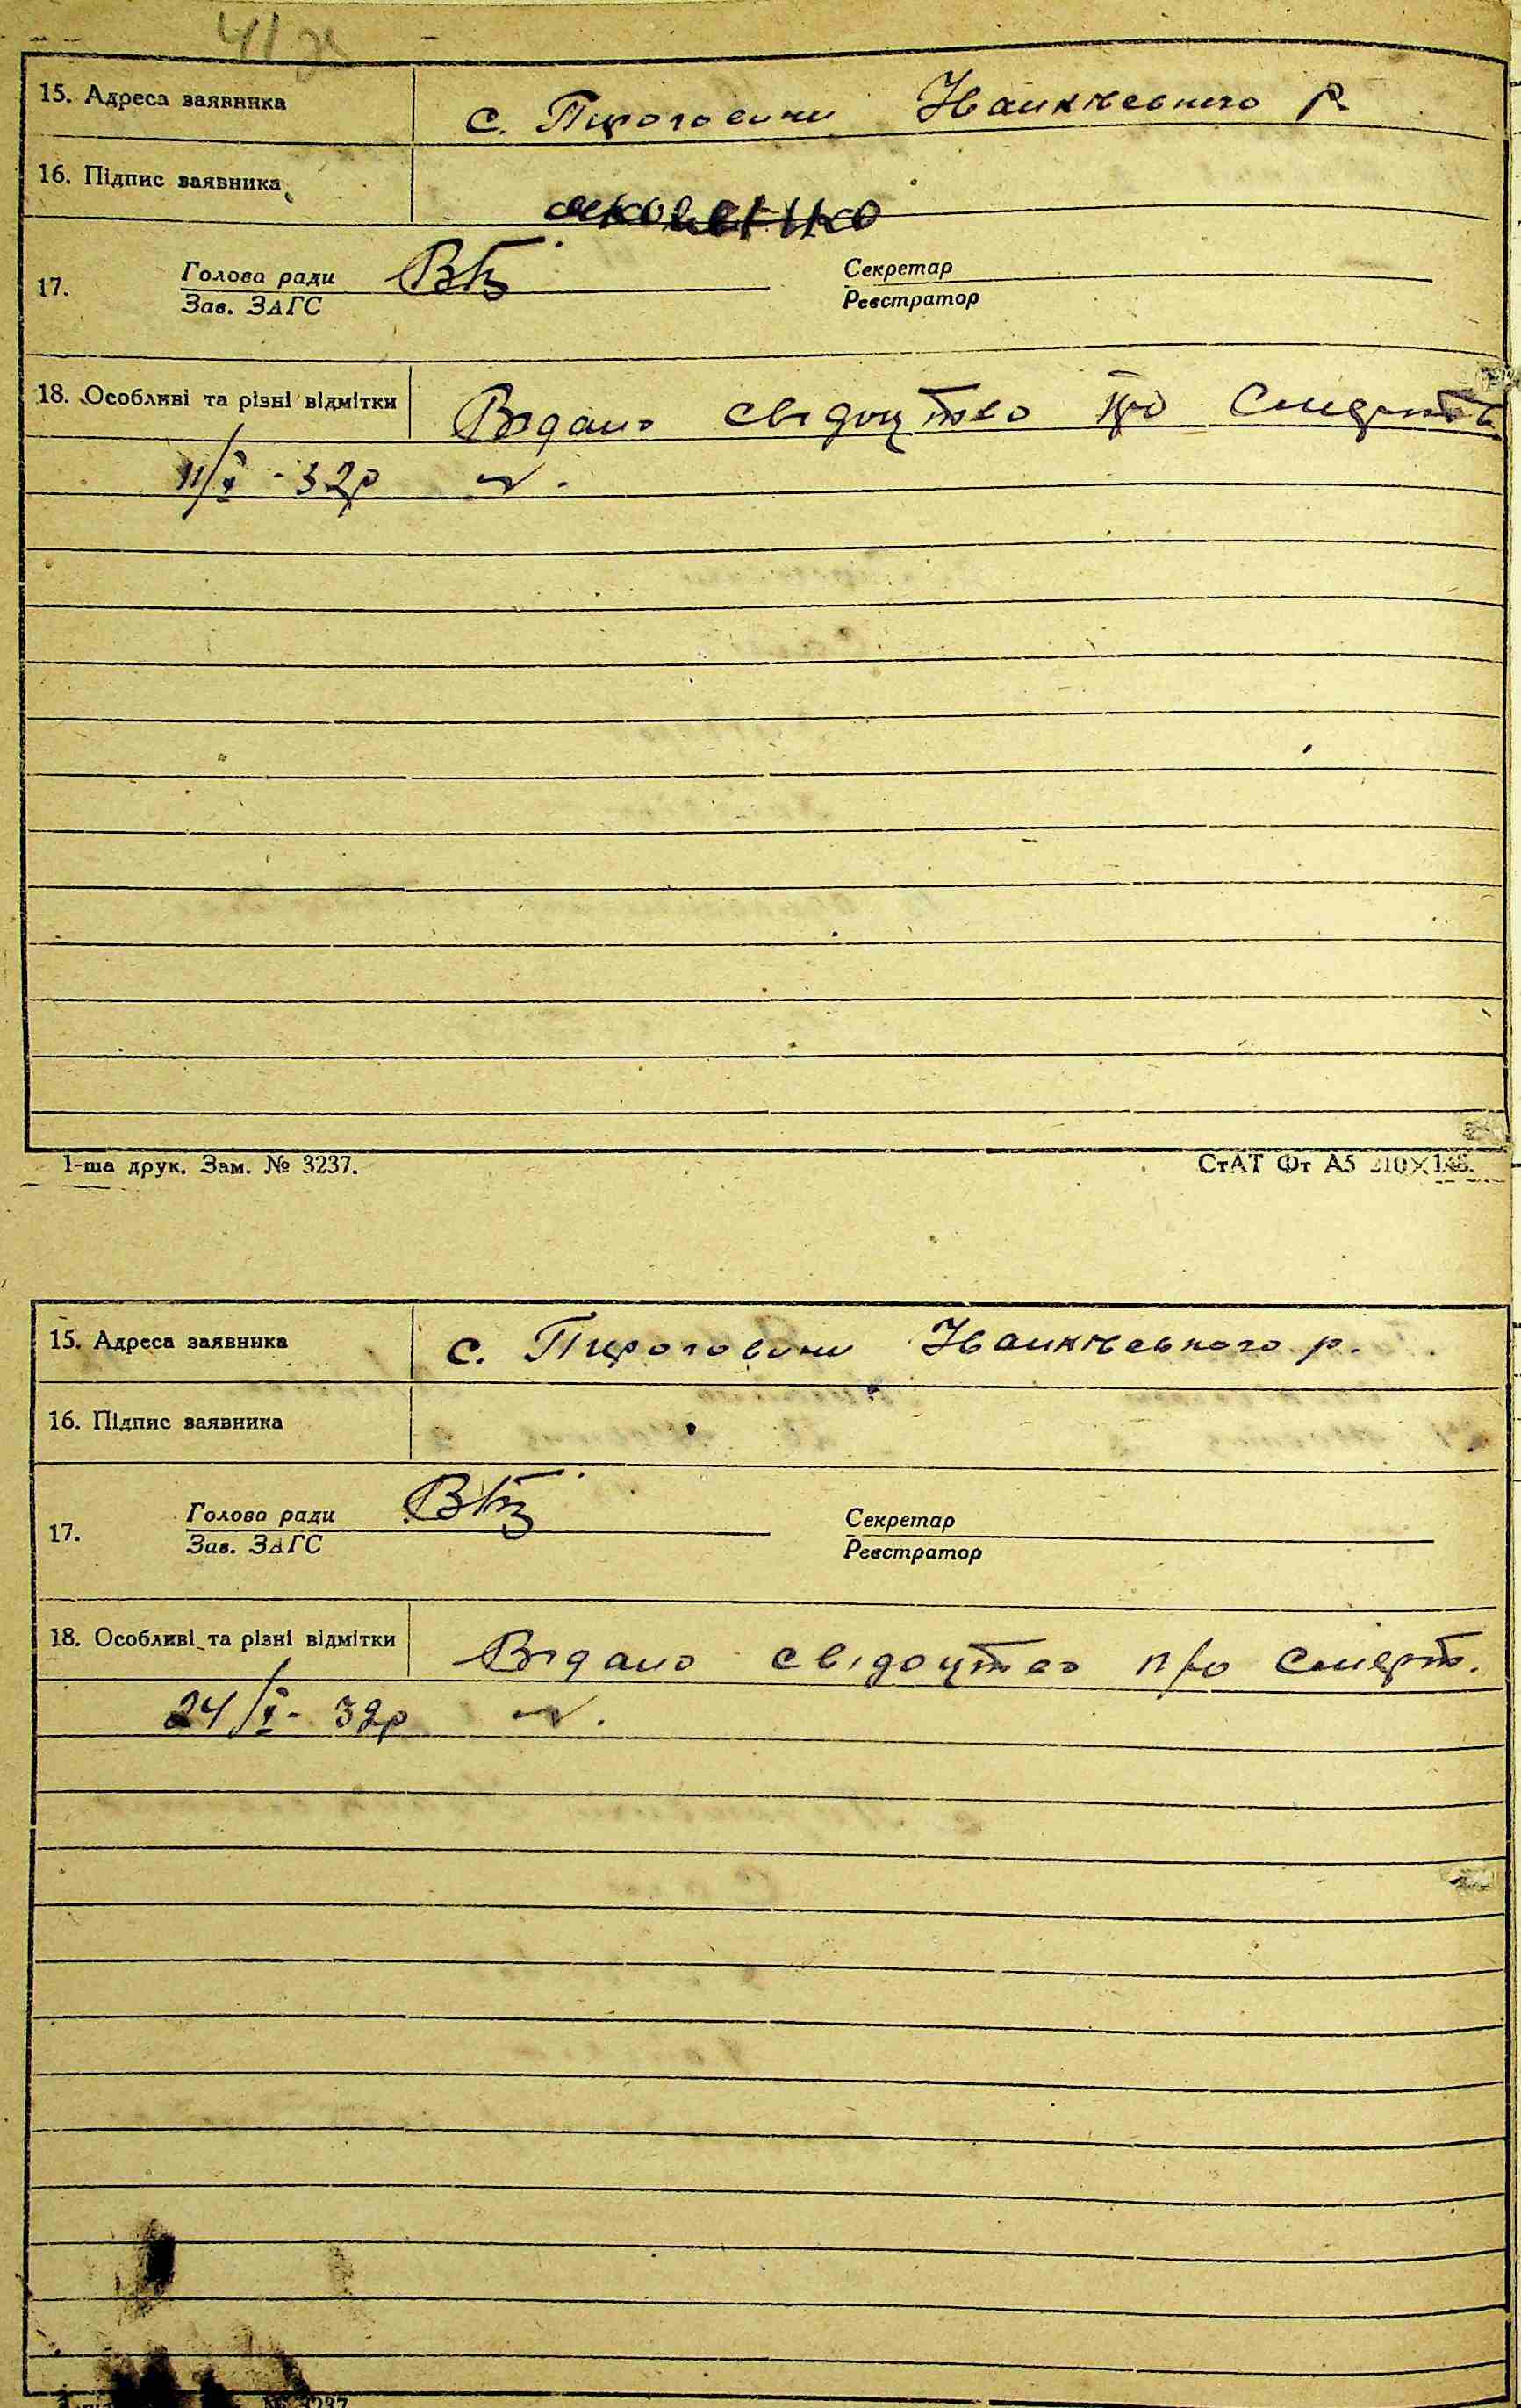 15. Адреса заявника
с. Пироговичи Іванківського р.
16. Підпис заявника
17. Голова ради
Зав. ЗАГС
Секретар
Реєстратор
18. Особливі та різні відмітки
Видано свідоцтво про смерть
11/X - 32р
1-ша друк. Зам. № 3237.
СтАТ Фт А5 210×148.
15. Адреса заявника
с. Пироговичи Іванківського р.
16. Підпис заявника
17. Голова ради
Зав. ЗАГС
Секретар
Реєстратор
18. Особливі та різні відмітки
Видано свідоцтво про смерт.
24/X - 32р
№ 3237